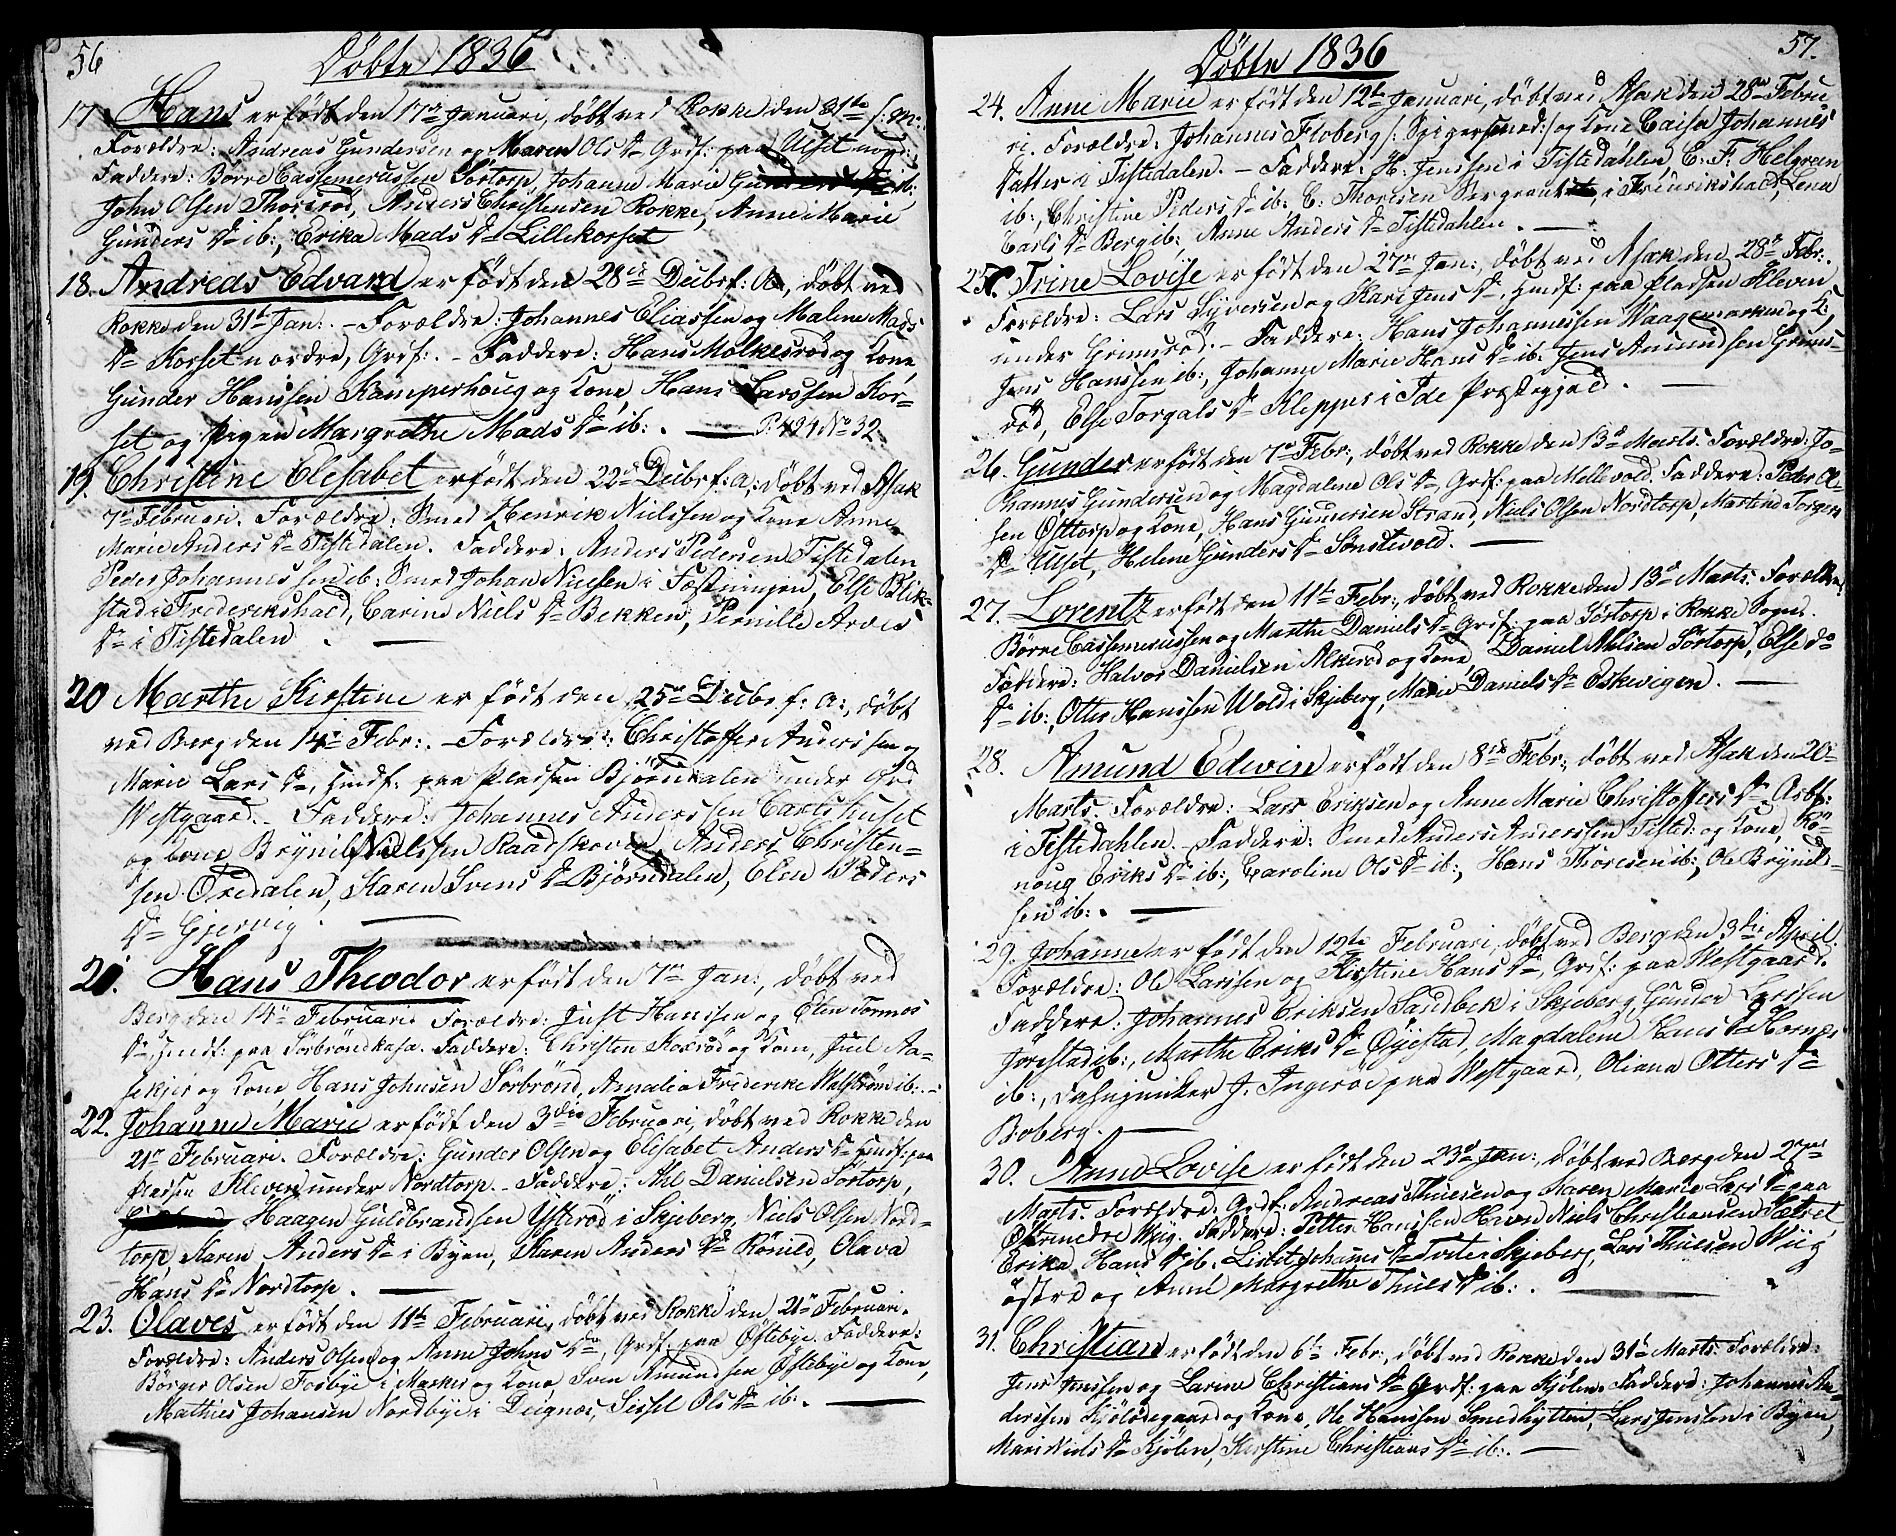 56
Döbte 1836
17. Hans er födt den 17de Januari, döbt ved Rokke den 31te
Forældre: Andreas Gundersen og Maren Ols Dr Grdf: paa Ulset
Faddere: Börre Cassemerussen Sörtorp, Johanne Marie ib:
John Olsen Thorsröd, Anders Christensen Rokke, Anne Marie
Gunders Dr ib:, Erika Mads Dr Lillekorset
18. Andreas Edvard er födt den 28de Decbr f: A:, döbt ved
Rokke den 31te Jan:. – Forældre: Johannes Eliassen og Malene Mads
Dr Korset nordre, Grdf:. – Faddere: Hans Molkesröd og Kone
Gunder Hanssen Kamperhoug og Kone, Hans Larssen Kor-
set og Pigen Margrethe Mads Dr ib:. P: 494 No 32
19. Christine Elesabet er födt den 22de Decbr f: A: döbt ved Asak
7de Februari. Forældre: Smed Henrik Nielsen og Kone Anne
Marie Anders Dr Tistedalen. Faddere: Anders Pedersen Tistedalen
Peder Johannessen ib: Smed Johan Nielsen i Fæstningen, Else Blik-
stad i Frederikshald, Carine Niels Dr Bekken, Pernille Arves
Dr i Tistedalen
20 Marthe Kirstine er födt den 25de Decbr f: A:, döbt
ved Berg den 14de Febr:. – Forældre: Christoffer Anderssen og
Marie Lars Dr, Huusf: paa Pladsen Björndalen under Grd
Westgaard. – Faddere: Johannes Anderssen Carlshuset
og Kone Brynild Nielssen Raadskoven, Anders Christen-
sen Oredalen, Karen Svens Dr Björndalen, Elen Peders
Dr Gjervig.
21. Hans Theodor er födt den 7de Jan:, döbt ved
Berg den 14de Februari Forældre: Just Hanssen og Elen Tormos
Dr, Huusf: paa Sörbröndkasa. Faddere: Christen Roxröd og Kone, Juel Aa-
sekjer og Kone, Hans Johnsen Sörbrönd, Amalia Frederike Walström ib:.
22. Johanne Marie er födt den 3die Februari, döbt ved Rokke den
21de Februari. Forældre: Gunder Olsen og Elisabet Anders Dr Huusf: paa
Pladsen Kleven under Nordtorp. – Faddere: Ahl Danielsen Sörtorp,
Haagen Guldbrandsen Ysteröd i Skjeberg, Niels Olsen Nord-
torp, Karen Anders Dr i Byen, Karen Anders Dr Rönild, Olava
Hans Dr Nordtorp.
23. Olaves er födt den 11te Februari, döbt ved Rokke den 21de Februari.
Forældre: Anders Olsen og Anne Johns Dr, Grdf: paa Östebye. Faddere:
Börger Olsen Fosbye i Marker og Kone, Sven Amundsen Östebye og Kone,
Mathies Johansen Nordbye i Deignes, Sissel Ols Dr ib:.
57.
Döbte 1836
24. Anne Marie er födt den 12te Januari, döbt ved Asak den 28de Febru
ri. Forældre: Johannes Floberg (: Spigersmed:) og Kone Caisa Johannes
Datter i Tistedalen. – Faddere: H: Jenssen i Tistedahlen, E: F: Helgreen
ib:, Christine Peders Dr ib: E: Thoresen Sergeant i Frederikshald, Lena
Carls Dr Berg ib:, Anne Anders Dr Tistedahlen.
25. Trine Lovise er födt den 27de Jan:, döbt ved Asak den 28de Febr:.
Forældre: Lars Syversen og Kari Jens Dr, Huusf: paa Pladsen Kleven
under Grimsröd. – Faddere: Hans Johannessen Waagemarken og K:,
Jens Hanssen ib:, Johanne Marie Hans Dr ib: Jens Amundsen Grims-
röd, Else Torgals Dr Klepper i Ide Præstegjeld.
26. Gunder er födt den 7de Febr:, döbt ved Rokke den 13de Marts. Forældre: Jo-
hannes Gundersen og Magdalene Ols Dr, Grdf: paa Mellevold. Faddere: Peder Ol-
sen Osttorp og Kone, Hans Gundersen Strand, Niels Olsen Nordtorp, Martine Torgers
Dr Ulset, Helene Gunders Dr Sönstevold.
27. Lorentz er födt den 11te Febr:, döbt ved Rokke den 13de Marts. Forældre:
Börre Cassemerussen og Marthe Daniels Dr Grdf: paa Sörtorp i Rokke Sogn.
Faddere: Halvor Danielsen Alkeröd og Kone, Daniel Ahlsen Sörtorp, Else do
Dr ib:, Otter Hanssen Wold i Skjeberg, Marie Daniels Dr Eskevigen.
28. Amund Edwin er födt den 8de Febr:, döbt ved Asak den 20de
Marts. Forældre: Lars Eriksen og Anne Marie Christoffers Dr Arbf:
i Tistedahlen. – Faddere: Smed Anders Anderssen Tisted: og Kone, Rö-
noug Eriks Dr ib:, Caroline Ols Dr ib:, Hans Thoresen ib:, Ole Brynild-
sen ib:.
29. Johanne er födt den 12te Februari, döbt ved Berg den 3die April.
Forældre: Ole Larssen og Kirstine Hans Dr, Grdf: paa Westgaard.
Faddere: Johannes Eriksen Sandbek i Skjeberg, Gunder Larssen
Jorestad ib:, Marthe Eriks Dr Öyestad, Magdalene Hans Dr Hornes
ib:, Fahnjunker J. Ingeröd paa Westgaard, Oliana Otters Dr
Boberg.
30. Anne Lovise er födt den 23de Jan:, döbt ved Berg den 27de
Marts. Forældre: Grdf: Andreas Thuesen og Karen Marie Lars Dr paa
Östre nedre Wiig. Faddere: Petter Hanssen Niels Christiansen Sætret
Erika Hans Dr ib:, Lisbet Johanns Dr Tvete i Skjeberg, Lars Thuesen Wiig
östre og Anne Margrethe Thues Dr ib:.
31. Christian er födt den 6te Febr:, döbt ved Rokke den 31te Marts. Forældre:
Jens Jenssen og Larine Christians Dr Grdf: paa Kjölen. Faddere: Johannes An-
derssen Kjölsdegaard og Kone, Ole Hanssen Smedhytten, Lars Jenssen i Byen,
Mari Niels Dr Kjölen, Kirstine Christians Dr ib:.